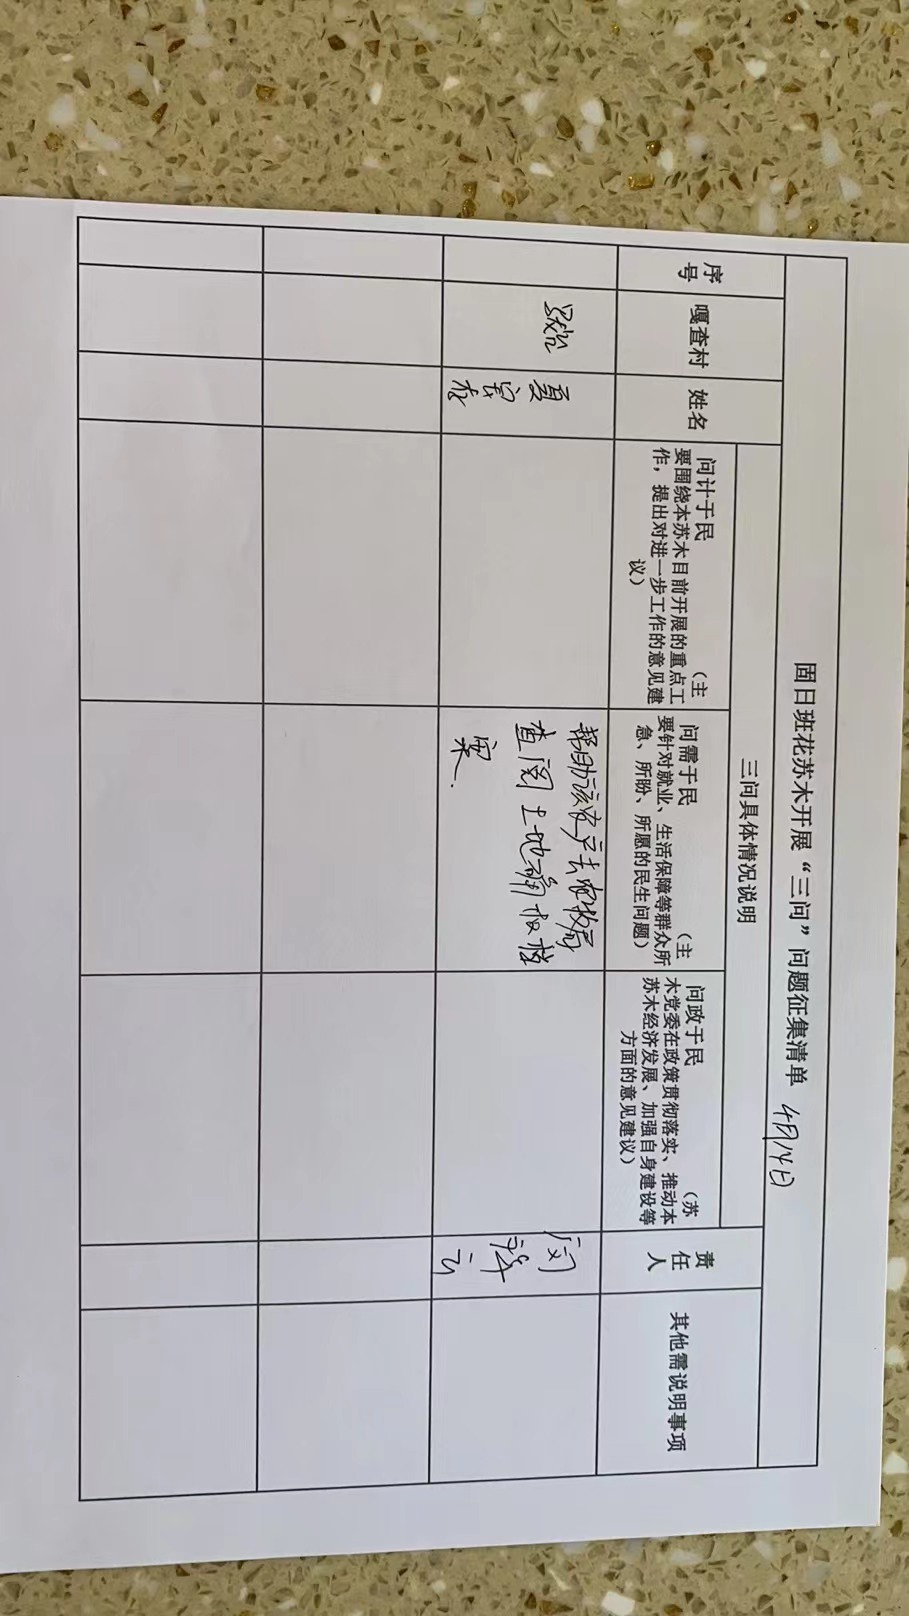 固日班花苏木开展“三问”问题征集清单 4月14日
序号
嘎查村
姓名
三问具体情况说明
责任人
其他需说明事项
问计于民（主
要围绕本苏木目前开展的重点工
作，提出对进一步工作的意见建
议）
问需于民（主
要针对就业、生活保障等群众所
急、所盼、所愿的民生问题）
问政于民（苏
木党委在政策贯彻落实、推动本
苏木经济发展、加强自身建设等
方面的意见建议）
帮助该农户去农牧局
查阅土地确权档
案.